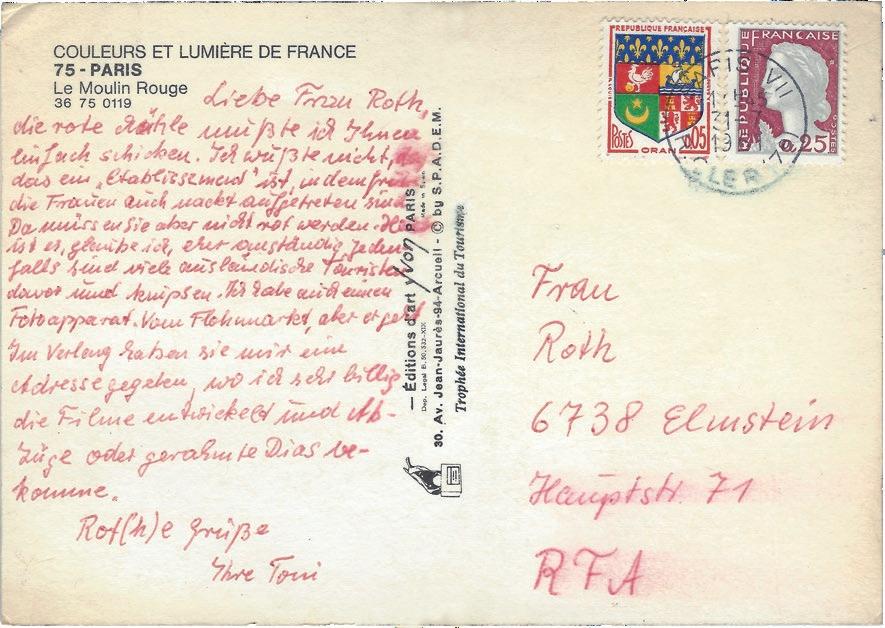 COULEURS ET LUMIÈRE DE FRANCE
75 - PARIS
Le Moulin Rouge
36 75 0119
Liebe Frau Roth,
die rote Mühle mußte ich Ihnen
einfach schicken. Ich wußte nicht,
dass ein „Etablissement" ist, in dem
die Frauen auch nackt aufgetreten sind.
Da müssen sie aber nicht rot werden.
ist es, glaube ich, eher anständig. Jeden-
falls sind viele ausländische Touristen
davor und knipsen. Ich habe auch einen
Fotoapparat. Vom Flohmarkt, aber er geht
Im Verlag haben sie mir eine
Adresse gegeben, wo ich sehr billig
die Filme entwickelt und Ab-
züge oder gerahmte Dias be-
komme.
Rot(h)e Grüße
Ihre Toni
— Éditions d'art yvon PARIS
Made in
Dep. Legal B. 50.532-XIX
30. Av. Jean-Jaurès-94-Arcueil - © by S.P.A.D.E.M.
Trophée International du Tourisme
REPUBLIQUE FRANÇAISE
POSTES
ORAN
0.05
REPUBLIQUE FRANÇAISE
POSTES
0,25
PARIS VIII
31-7
Frau
Roth
6738 Elmstein
Hauptstr. 71
RFA